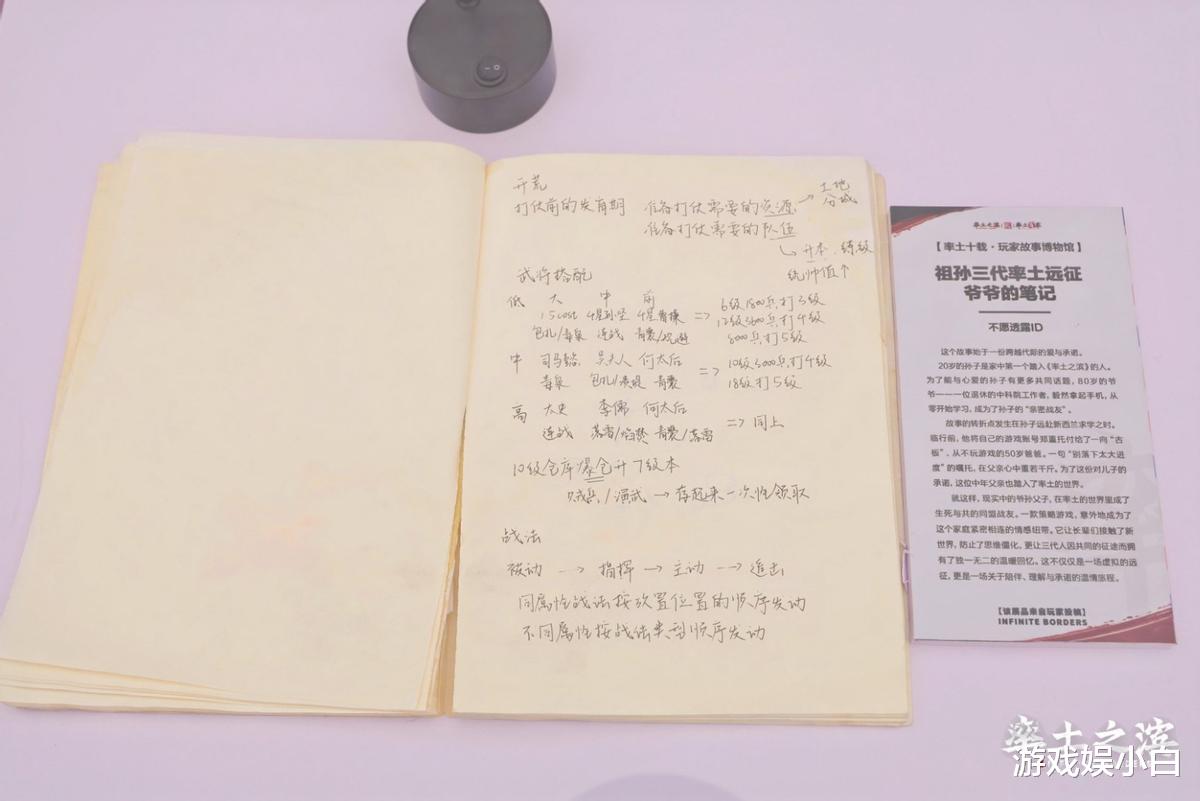 开荒
打仗前的发育期 准备打仗需要的资源 → 土地 分城
准备打仗需要的队伍
↳ 升本、练级
统帅值↑
武将搭配
低 大 中 前
4星孙坚 => 6级1800兵打3级
连战 12级3600兵打4级
8000兵打5级
中 司马懿 吴夫人 何太后 => 10级3000兵打4级
毒泉 18级打5级
高 大史 李儒 何太后 => 同上
连战
10级仓库爆仓升7级本
贼兵/演武 → 存起来一次性领取
战法
被动 --> 指挥 → 主动 --> 追击
同属性战法按放置位置的顺序发动
不同属性按战法类型顺序发动
率土之滨
【率土十载·玩家故事博物馆】
祖孙三代率土远征
爷爷的笔记
不愿透露ID
这个故事始于一份跨越代际的爱与承诺。
20岁的孙子是家中第一个踏入《率土之滨》的人。
为了能与心爱的孙子有更多共同话题,80岁的爷
爷——一位退休的中科院工作者,毅然拿起手机,从
零开始学习,成为了孙子的“亲密战友”。
故事的转折点发生在孙子远赴新西兰求学之时。
临行前,他将自己的游戏账号郑重托付给了一向“古
板”、从不玩游戏的50岁爸爸。一句“别落下太大进
度”的嘱托,在父亲心中重若千斤。为了这份对儿子的
承诺,这位中年父亲也踏入了率土的世界。
就这样,现实中的爷孙父子,在率土的世界里成了
生死与共的同盟战友。一款策略游戏,意外地成为了
这个家庭紧密相连的情感纽带。它让长辈们接触了新
世界,防止了思维僵化,更让三代人因共同的征途而拥
有了独一无二的温暖回忆。这不仅仅是一场虚拟的远
征,更是一场关于陪伴、理解与承诺的温情旅程。
【该展品来自玩家投稿】
INFINITE BORDERS
率土之滨
游戏娱小白